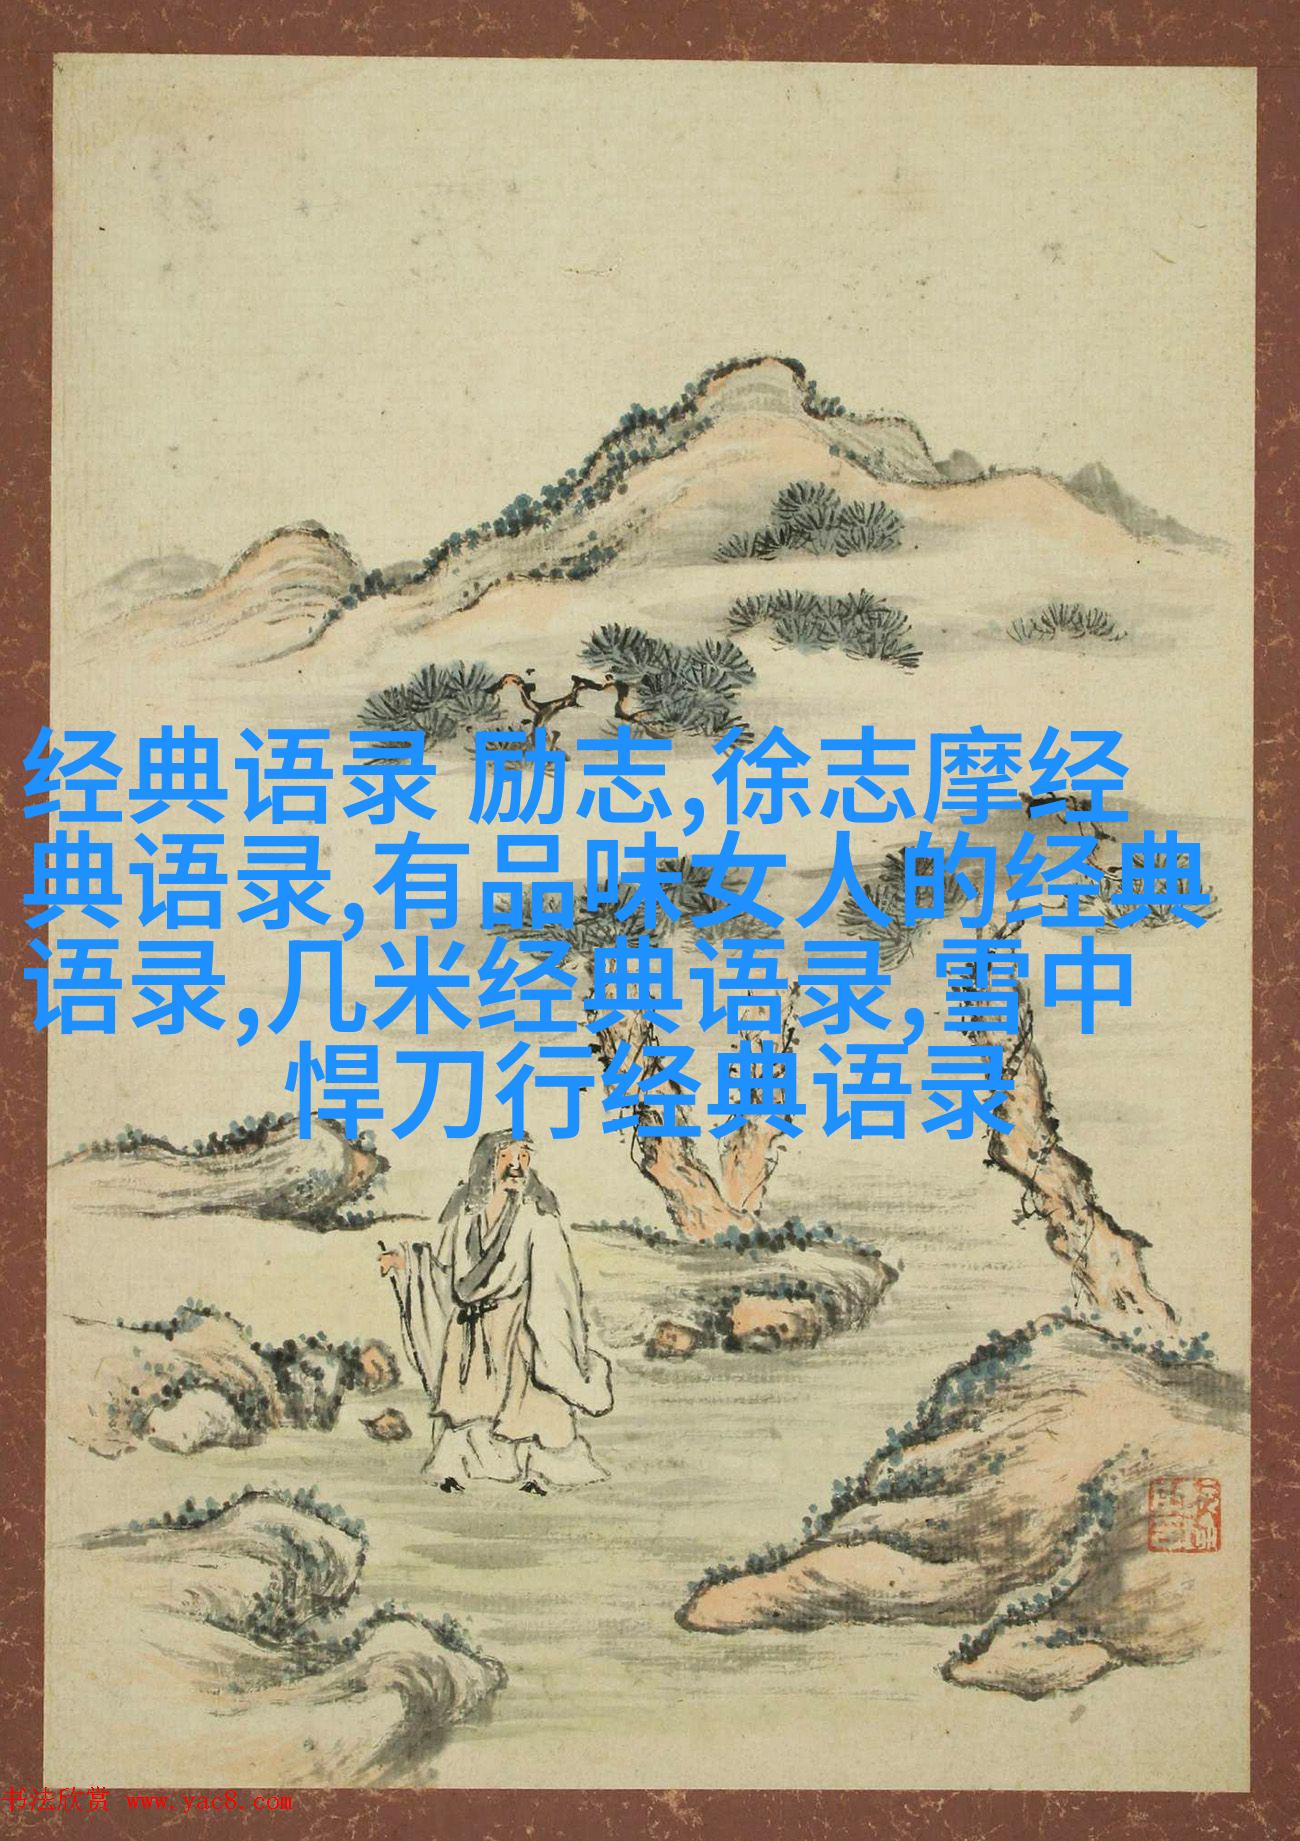 经典语录 励志,徐志摩经
典语录,有品味女人的经典
语录,几米经典语录,雪中
悍刀行经典语录
书法欣赏 www.yac8.com